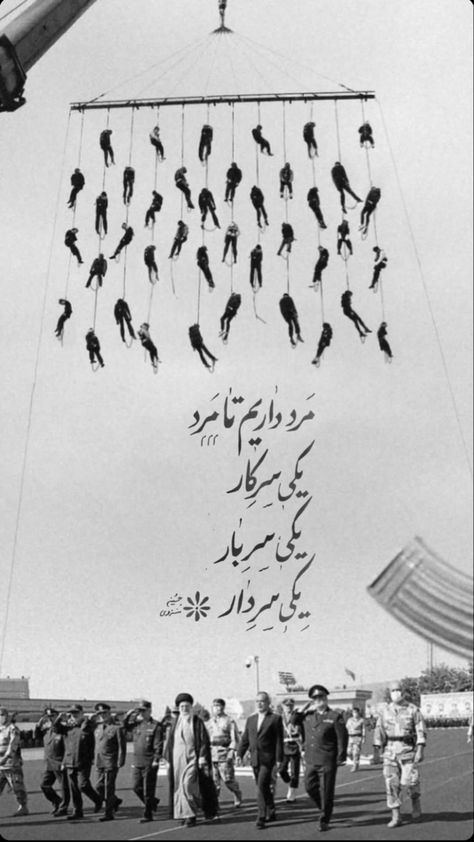 مَرد داریم تا مَرد
یکی سرِ کار
یکی سرِ بار
یکی سرِ دار